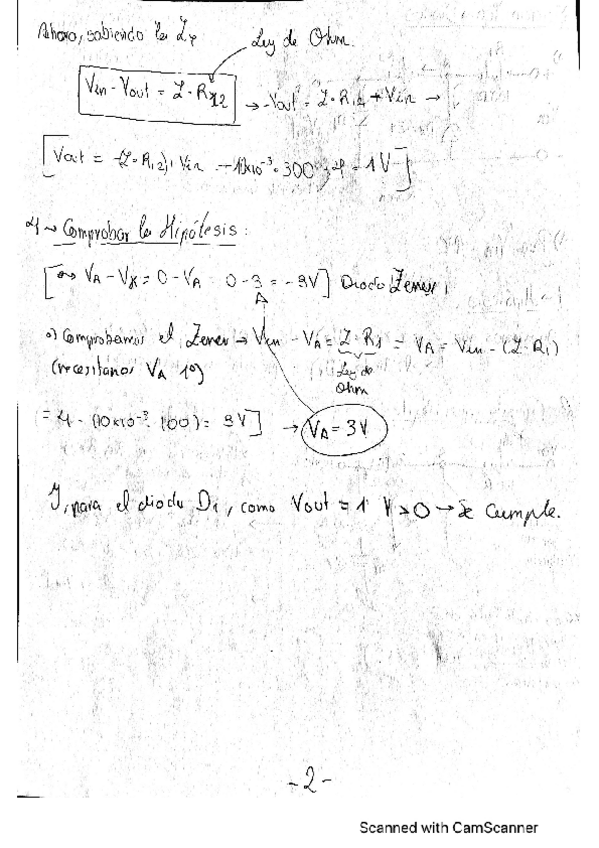 Ahora, sabiendo la I,
Ley de Ohm.
Vin - Vout = I · R12 → -Vout = I · R12 + Vin →
[Vout = -(I · R12) + Vin - 10×10⁻³ · 300 + 4 = 1V]
4 → Comprobar la Hipótesis:
VA - VK = 0 - VA = 0 - 3 = -3V] Diodo Zener
o) Comprobamos el Zener → Vin - VA = I · R1 = VA = Vin - (I · R1)
(necesitamos VA 1º)
Ley de
Ohm
= 4 - (10×10⁻³ · 100) = 3V] → VA = 3V
Y, para el diodo D1, como Vout = 1 V > 0 → Se Cumple.
-2-
Scanned with CamScanner